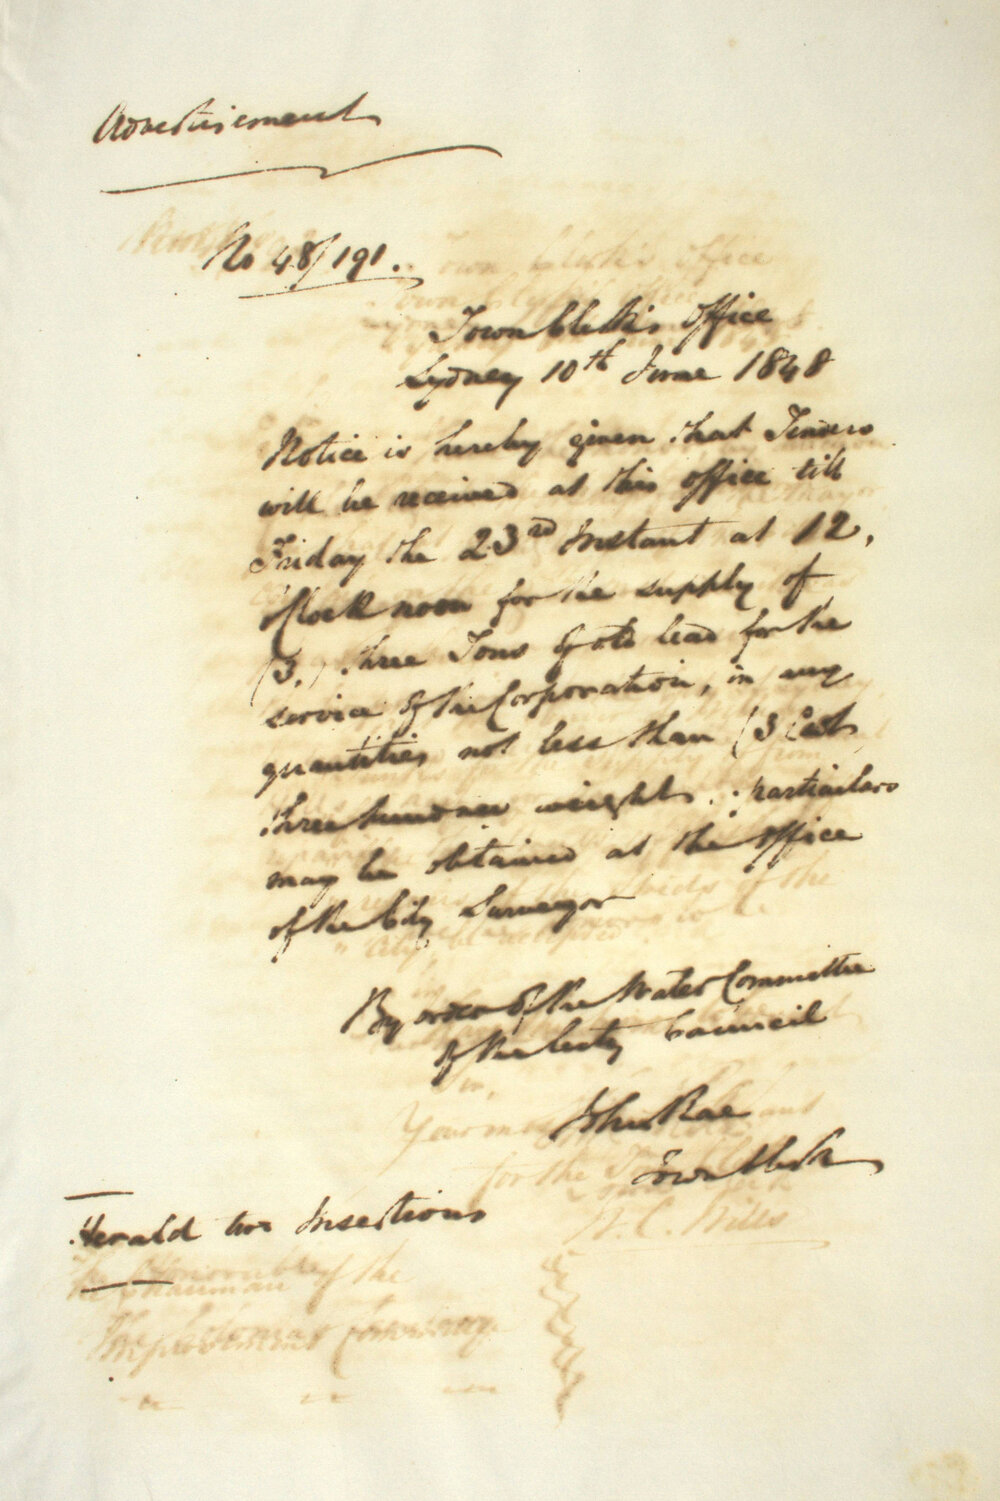 Advertisement
No 48/191.
Town Clerk's Office
Sydney 10th June 1848
Notice is hereby given that Tenders
will be received at this office till
Friday the 23rd Instant at 12,
oClock noon for the supply of
(3,) three Tons of old lead for the
service of the Corporation, in any
quantities not less than (3 Cwt
three hundred weight. particulars
may be obtained at the office
of the City Surveyor
By order of the Water Committee
of the City Council
John Rae
Town Clerk
Herald two Insertions